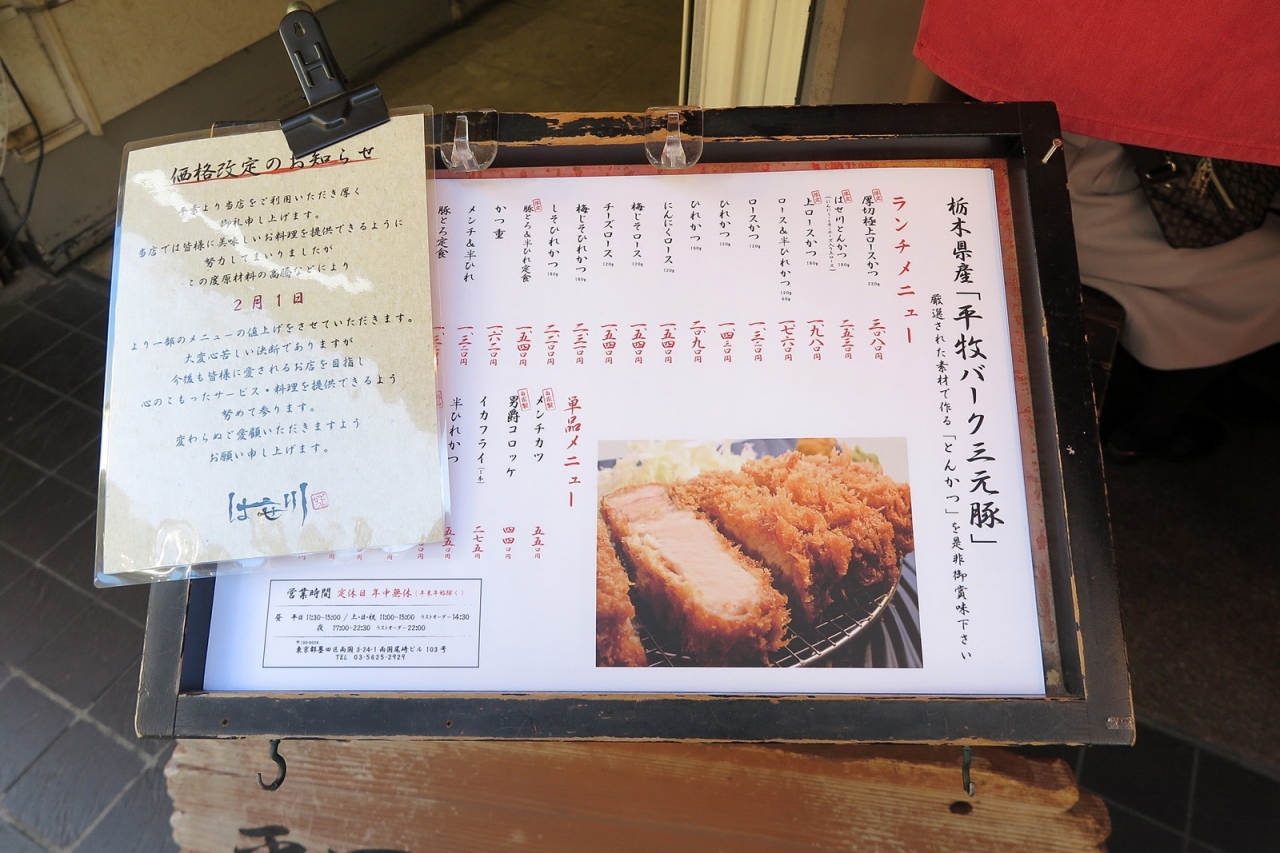 価格改定のお知らせ
平素より当店をご利用いただき厚く
御礼申し上げます。
当店では皆様に美味しいお料理を提供できるように
努力してまいりましたが
この度原材料の高騰などにより
2月1日
より一部のメニューの値上げをさせていただきます。
大変心苦しい決断でありますが
今後も皆様に愛されるお店を目指し
心のこもったサービス・料理を提供できるよう
努めて参ります。
変わらぬご愛顧いただきますよう
お願い申し上げます。
はせ川
栃木県産「平牧バーク三元豚」
厳選された素材で作る「とんかつ」を是非御賞味下さい
ランチメニュー
限定 厚切極上ロースかつ 220g 三、〇八〇円
限定 はせ川とんかつ 160g 二、五三〇円
限定 上ロースかつ 160g 一、九八〇円
ロース&半ひれかつ 120g 60g 一、七六〇円
ロースかつ 120g 一、三二〇円
ひれかつ 120g 一、四三〇円
ひれかつ 180g 二、〇九〇円
にんにくロース 120g 一、五四〇円
梅じそロース 120g 一、五四〇円
チーズロース 120g 一、五四〇円
梅じそひれかつ 180g 二、三一〇円
しそひれかつ 180g 二、二〇〇円
限定 豚とろ&半ひれ定食 一、五四〇円
かつ重 一、六二〇円
メンチ&半ひれ 一、三二〇円
豚とろ定食
単品メニュー
自家製 メンチカツ 五五〇円
自家製 男爵コロッケ 四四〇円
イカフライ(一本) 二七五円
半ひれかつ 五五〇円
営業時間 定休日 年中無休(年末年始除く)
昼 平日 11:30~15:00 / 土・日・祝 11:00~15:00 ラストオーダー 14:30
夜 17:00~22:30 ラストオーダー 22:00
東京都墨田区両国 3-24-1 両国尾崎ビル 103 号
TEL 03-5625-2929